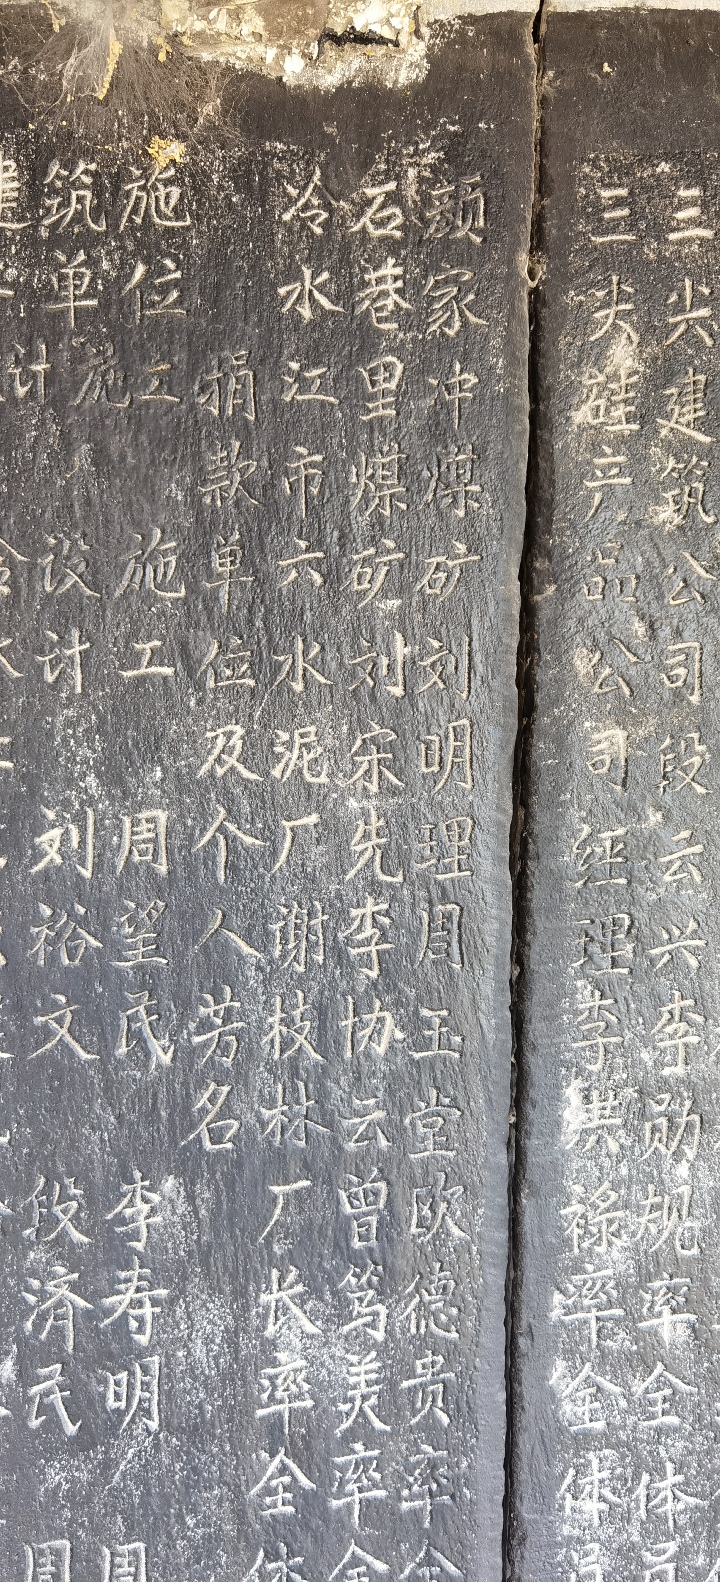 三尖建筑公司段云兴李勋规率全体员
三尖硅产品公司经理李洪禄率全体员
颜家冲煤矿刘明理周玉堂欧德贵率全
石巷里煤矿刘宋先李协云曾笃美率全
冷水江市六水泥厂谢枝林厂长率全体
捐款单位及个人芳名
施位工 施工 周望民 李寿明 周
筑单施 设计 刘裕文 段济民 周
建 计